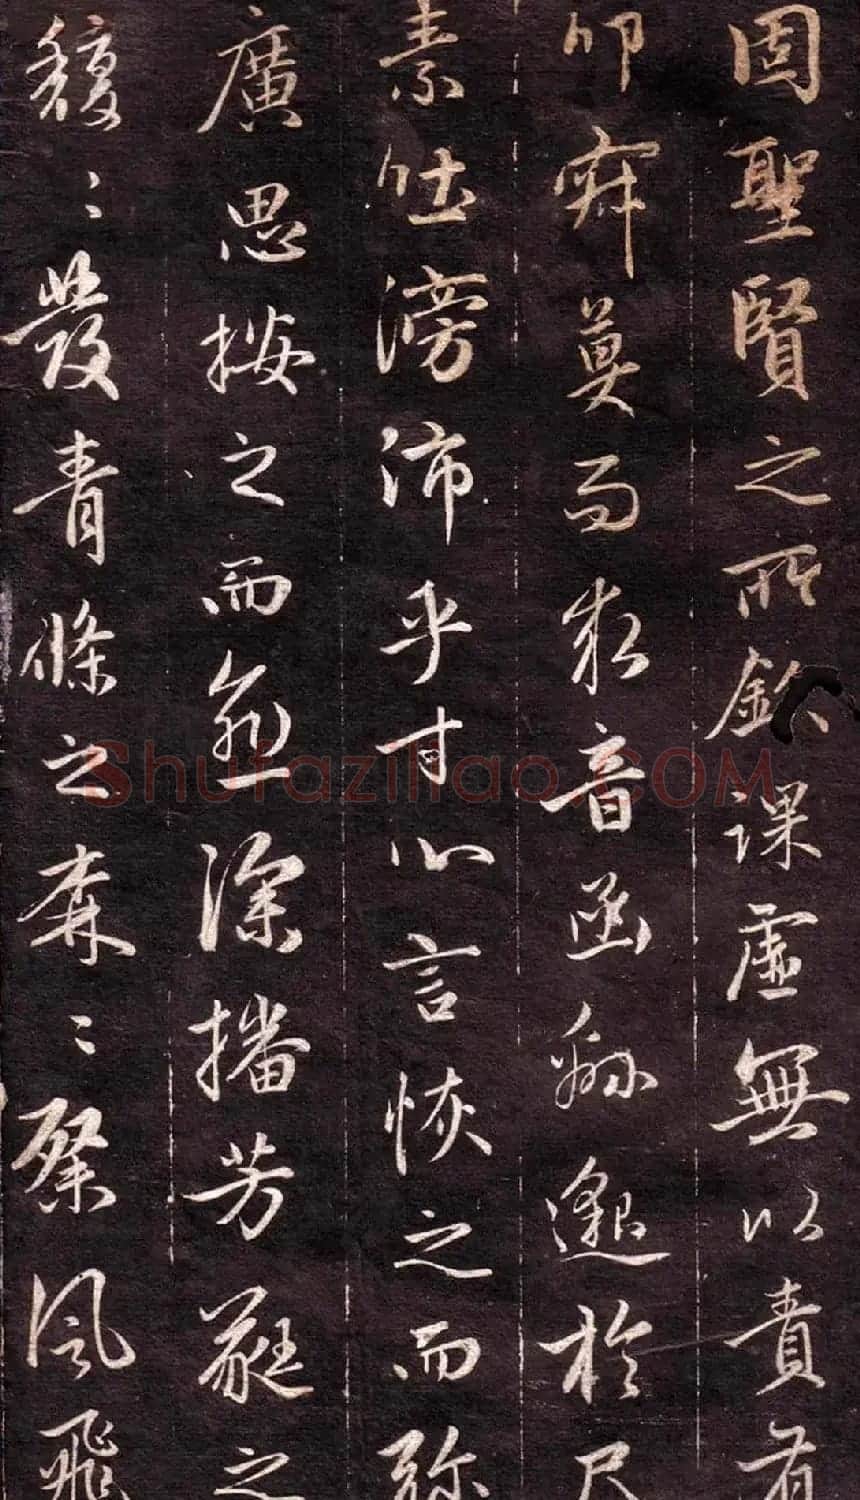 固聖賢之所欽課虛無以責有
叩寂寞而求音函緜邈於尺
素吐滂沛乎寸心言恢之而彌
廣思按之而愈深播芳蕤之
馥〻發青條之森〻粲風飛
Shufaziliao.COM